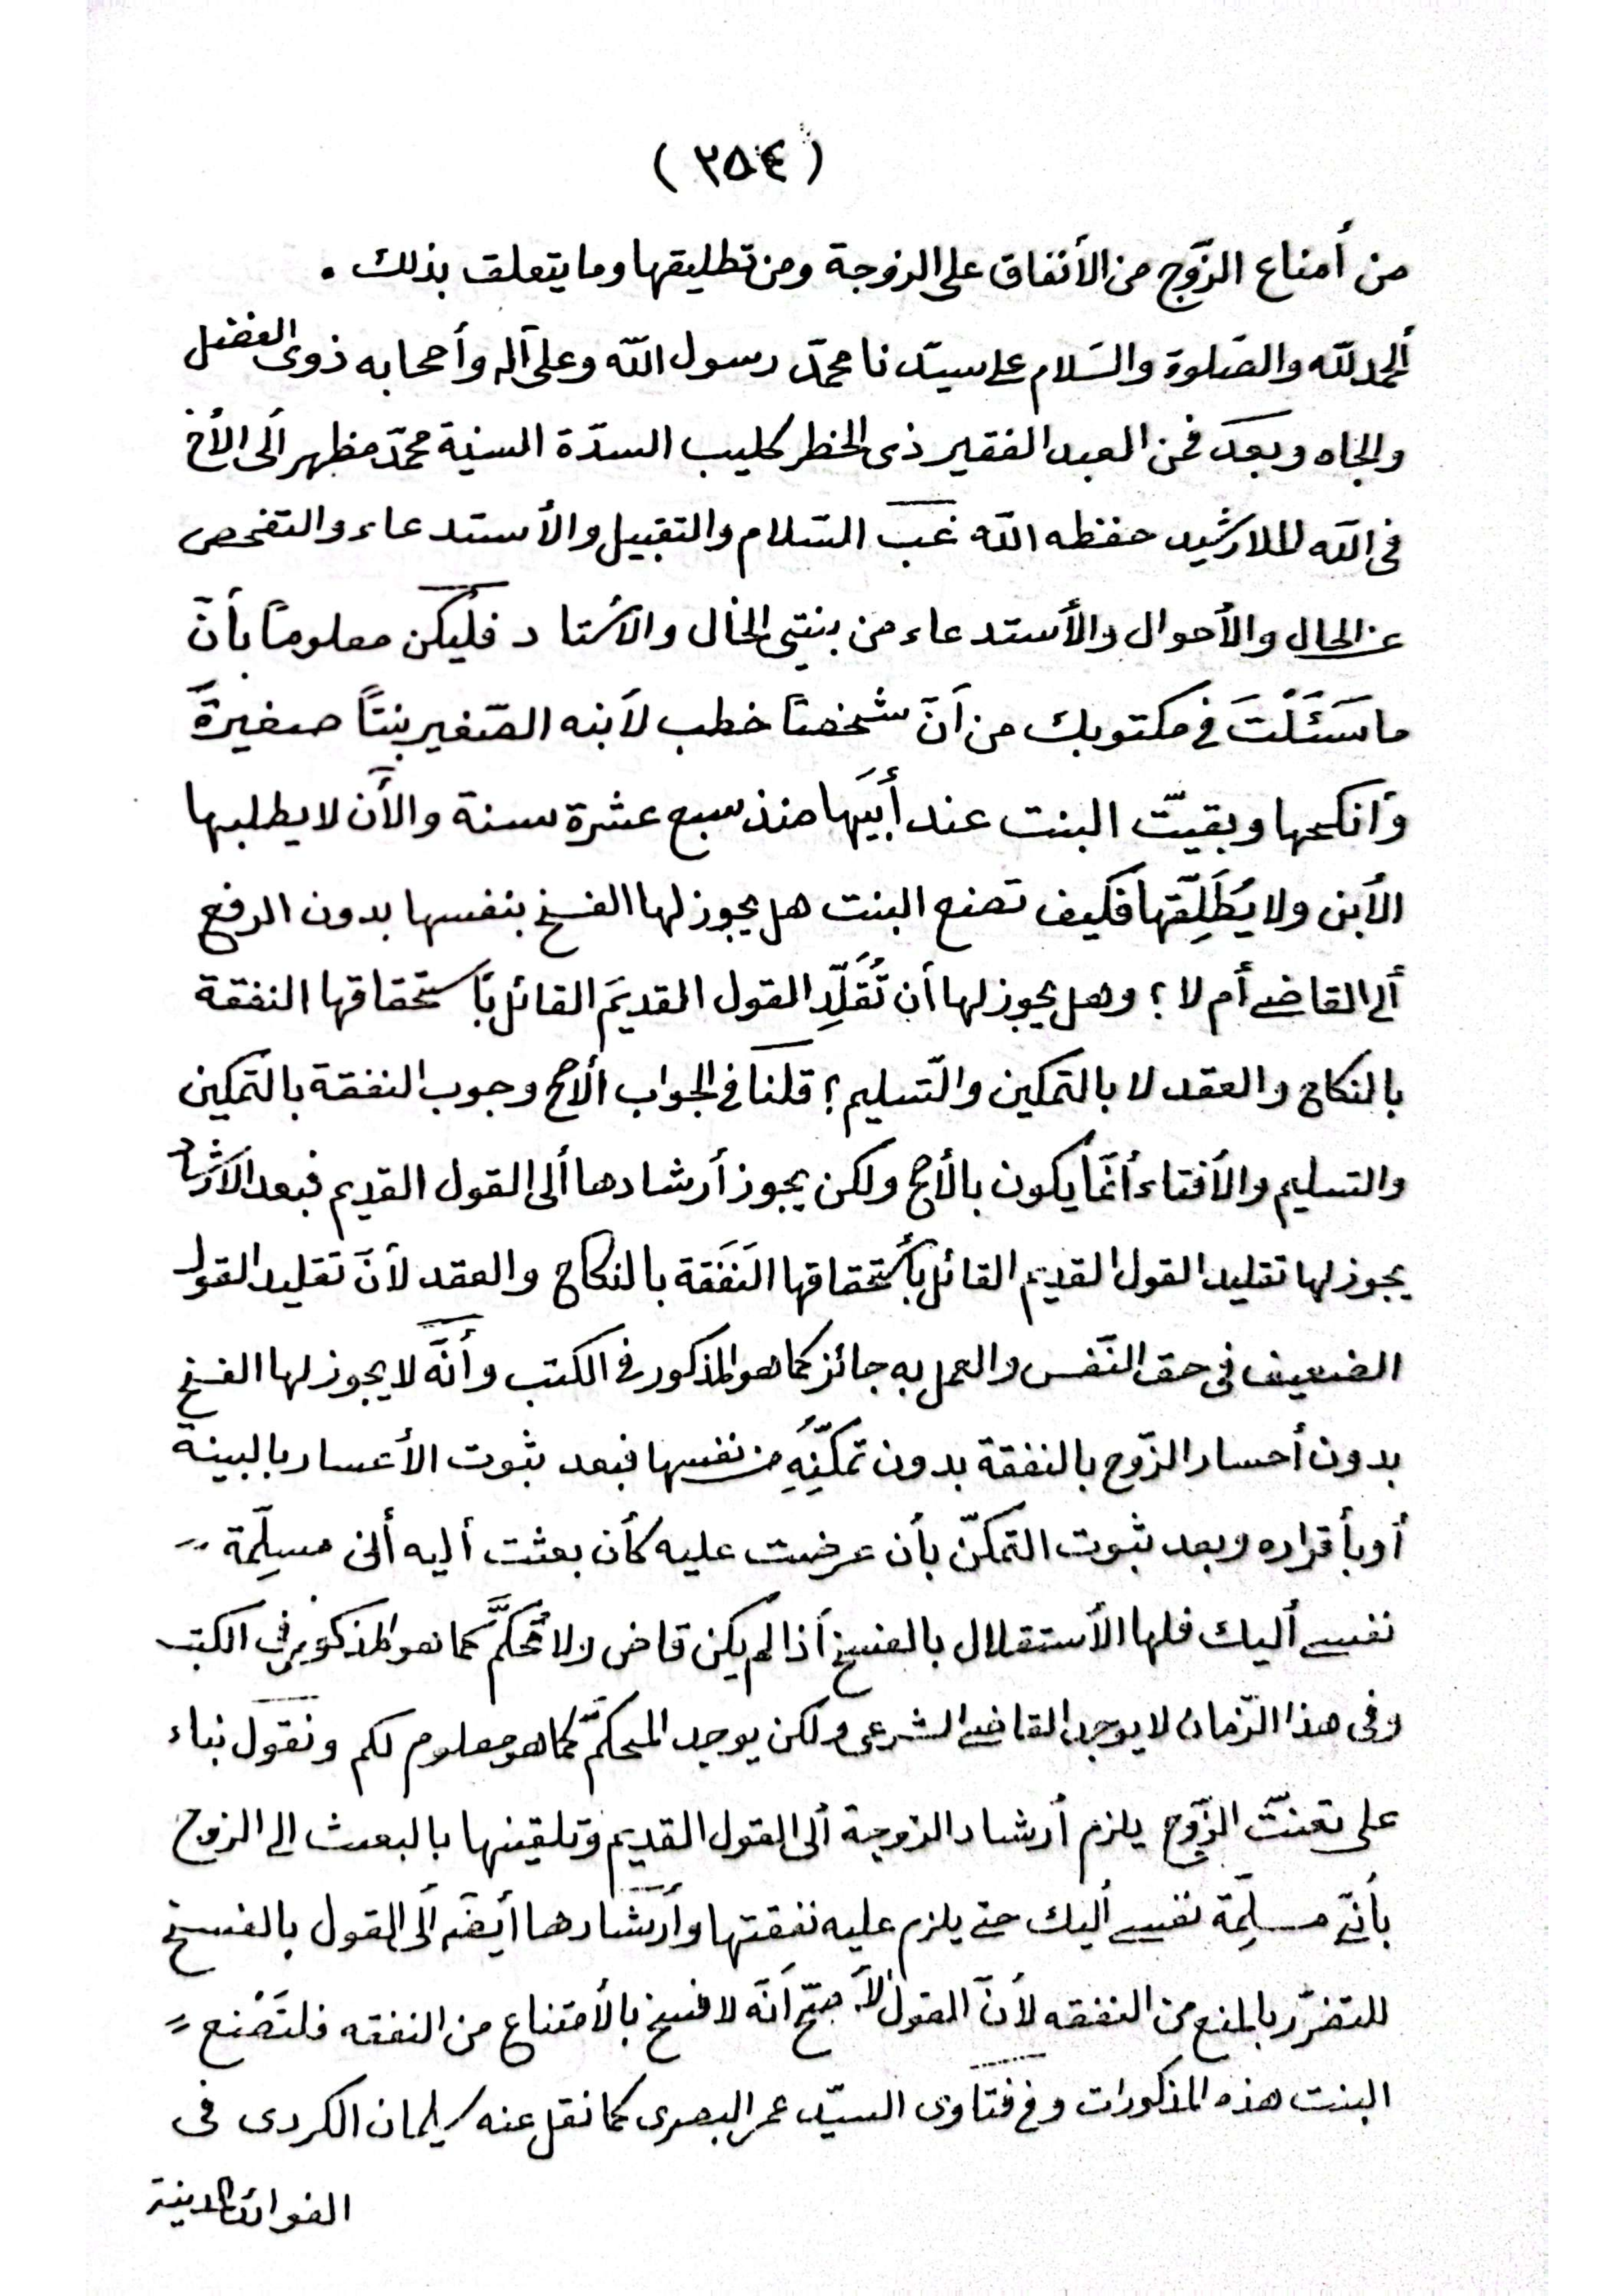 (٢٥٤)
من أمناع الزّوج من الأنفاق على الزوجة ومن تطليقها وما يتعلق بذلك .
ألحمد للّه والصّلوة والسّلام على سيّدنا محمّد رسول اللّه وعلى آله وأصحابه ذوى الفضل
والجاه وبعد فمن العبد الفقير ذى الخطر كليب السدّة السنية محمّد مظهر ألى الأخ
فى اللّه الملا رشيد حفظه اللّه غبّ السّلام والتقبيل والأستدعاء والتفحص
عن الحال والأحوال والأستدعاء من بنتى الخال والأستاد فليكن معلومًا بأنّ
ما سَئَلْتَ فى مكتوبك من أنّ شخصًا خطب لأبنه الصّغير بنتًا صغيرةً
وأنكحها وبقيتّ البنت عند أبَيها منذ سبع عشرة سنة والأن لا يطلبها
الأبن ولا يُطَلِّقها فكيف تصنع البنت هل يجوز لها الفسخ بنفسها بدون الرفع
ألى القاضى أم لا ؟ وهل يجوز لها أن تُقَلِّد القول القديمَ القائل بأستحقاقها النفقة
بالنكاح والعقد لا بالتمكين والتّسليم ؟ قلنا فى الجواب ألأصح وجوب النفقة بالتمكين
والتسليم والأفتاء أنّما يكون بالأصح ولكن يجوز أرشادها ألى القول القديم فبعد الأرشاد
يجوز لها تقليد القول القديم القائل بأستحقاقها النّفَقة بالنكاح والعقد لأنّ تقليد القول
الضعيف فى حق النّفس والعمل به جائز كما هو المذكور فى الكتب وأنّه لا يجوز لها الفسخ
بدون أحسار الزّوج بالنفقة بدون تمكّنِهِ من نفسها فبعد ثبوت الأعسار بالبينة
أو بأقراره وبعد ثبوت التمكّن بأن عرضت عليه كأن بعثت أليه أنى مسلِّمة =
نفسى أليك فلها الأستقلال بالفسخ أذا لم يكن قاض ولا مُحكمَّ كما هو المذكور فى الكتب
وفى هذا الزّمان لا يوجد القاضى الشرعى ولكن يوجد المحكمّ كما هو معلوم لكم ونقول بناء
على تعنتّ الزّوج يلزم أرشاد الزوجة ألى القول القديم وتلقينها بالبعث الى الزوج
بأنّى مسلِّمة نفسى أليك حتى يلزم عليه نفقتها وأرشادها أيضًا ألى القول بالفسخ
للتضرّر بالمنع من النفقه لأنّ القول الأصحّ أنّه لا فسخ بالأمتناع من النفقه فلتَصْنع =
البنت هذه المذكورات وفى فتاوى السيّد عمر البصرى كما نقل عنه سليمان الكردى فى
الفوائد المدنية